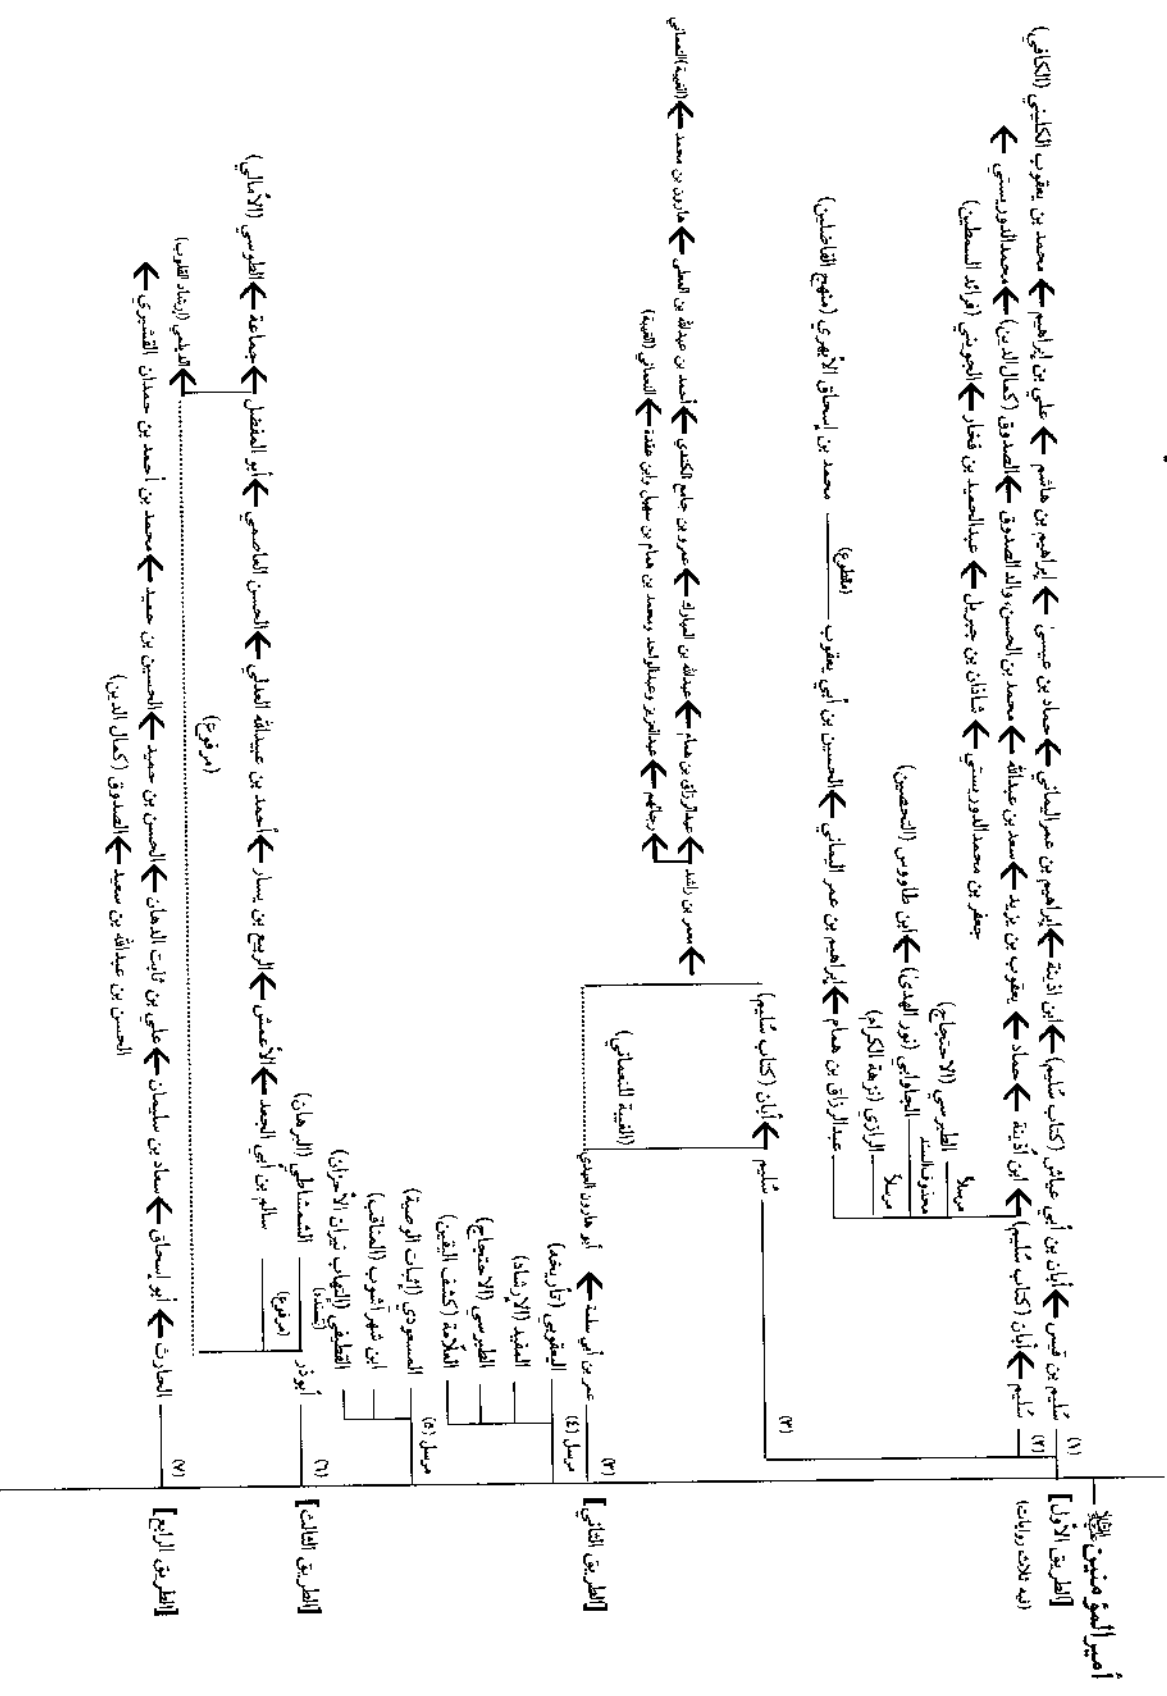 أمير المؤمنين عليه السلام
[الطريق الأول]
(فيه ثلاث روايات)
(١)
سُليم بن قيس ← أبان بن أبي عياش (كتاب سُليم) ← ابن اذينة ← إبراهيم بن عمر اليماني ← حماد بن عيسىٰ ← إبراهيم بن هاشم ← علي بن إبراهيم ← محمد بن يعقوب الكليني (الكافي)
(٢)
سُليم ← أبان (كتاب سُليم) ← ابن أذينة ← حماد ← يعقوب بن يزيد ← سعد بن عبدالله ← محمد بن الحسن، والد الصدوق ← الصدوق (كمال الدين) ← محمد الدوريستي ←
جعفر بن محمد الدوريستي ← شاذان بن جبريل ← عبدالحميد بن فخار ← الجويني (فرائد السمطين)
مرسلاً
الطبرسي (الاحتجاج)
محذوف السند
الجاوابي (نور الهدىٰ) ← ابن طاووس (التحصين)
مرسلاً
الرازي (نزهة الكرام)
عبدالرزاق بن همام ← إبراهيم بن عمر اليماني ← الحسين بن أبي يعقوب
(مقطوع)
محمد بن إسحاق الأبهري (منهج الفاضلين)
(٣)
سُليم ← أبان (كتاب سُليم)
← معمر بن راشد ← عبدالرزاق بن همام ← عبدالله بن المبارك ← عمرو بن جامع الكندي ← أحمد بن عبدالله بن المعلى ← هارون بن محمد ← (الغيبة) النعماني
← رجالهم ← عبدالعزيز وعبدالواحد ومحمد بن همام بن سهيل وابن عقدة ← النعماني (الغيبة)
(الغيبة للنعماني)
[الطريق الثاني]
(٣)
عمر بن أبي سلمة ← أبو هارون العبدي
مرسل (٤)
اليعقوبي (تأريخه)
المفيد (الإرشاد)
الطبرسي (الاحتجاج)
العلّامة (كشف اليقين)
مرسل (٥)
المسعودي (إثبات الوصية)
ابن شهر آشوب (المناقب)
القطيفي (التهاب نيران الأحزان)
[الطريق الثالث]
(٦)
أبوذر
(بسنده)
الشمشاطي (البرهان)
(مرفوع)
سالم بن أبي الجعد ← الأعمش ← الربيع بن يسار ← أحمد بن عبيدالله العدلي ← الحسن العاصمي ← أبو المفضل ← جماعة ← الطوسي (الأمالي)
(مرفوع)
← الديلمي (إرشاد القلوب)
[الطريق الرابع]
(٧)
الحارث ← أبو إسحاق ← سعاد بن سليمان ← علي بن ثابت الدهان ← الحسن بن حميد ← الحسين بن حميد ← محمد بن أحمد بن حمدان القشيري ←
الحسن بن عبدالله بن سعيد ← الصدوق (كمال الدين)